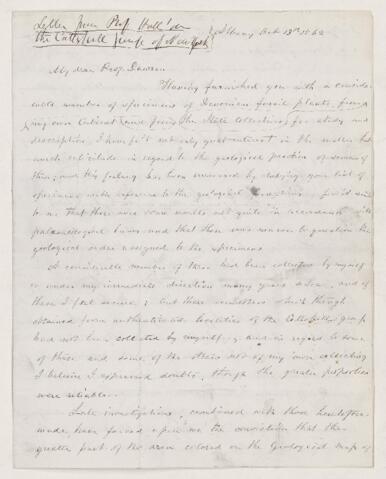 Letter from Prof Hall on
the Cattskill group of New York
Albany Oct 13th 1862
My dear Prof. Dawson
Having furnished you with a consid-
erable number of specimens of Devonian fossil plants, from
my own Cabinet and from the State Collections for study and
description, I have felt not only great interest in the matter but
much solicitude in regard to the geological position of some of
them; and this feeling has been increased by studying your list of
species with reference to the geological
to me that there were some results not quite in accordance with
palaeontological laws and that there was reason to question the
geological order assigned to the specimens
A considerable number of these had been collected by myself
or under my immediate direction many years since, and of
these I felt secure; but there were others which though
obtained from authenticated localities of the Cattskill group
had not been collected by myself; and in regard to some
of these and some of the others not of my own collecting
I believe I expressed doubts, though the greater proportion
were reliable.
Late investigations, combined with those heretofore
made, have forced upon me the conviction that the
greater part of the area colored on the Geological map of